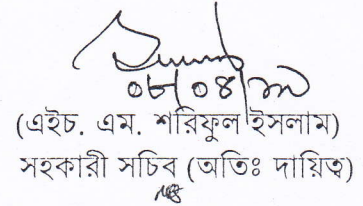 ০৮/০৪/১৯
(এইচ. এম. শরিফুল ইসলাম)
সহকারী সচিব (অতিঃ দায়িত্ব)